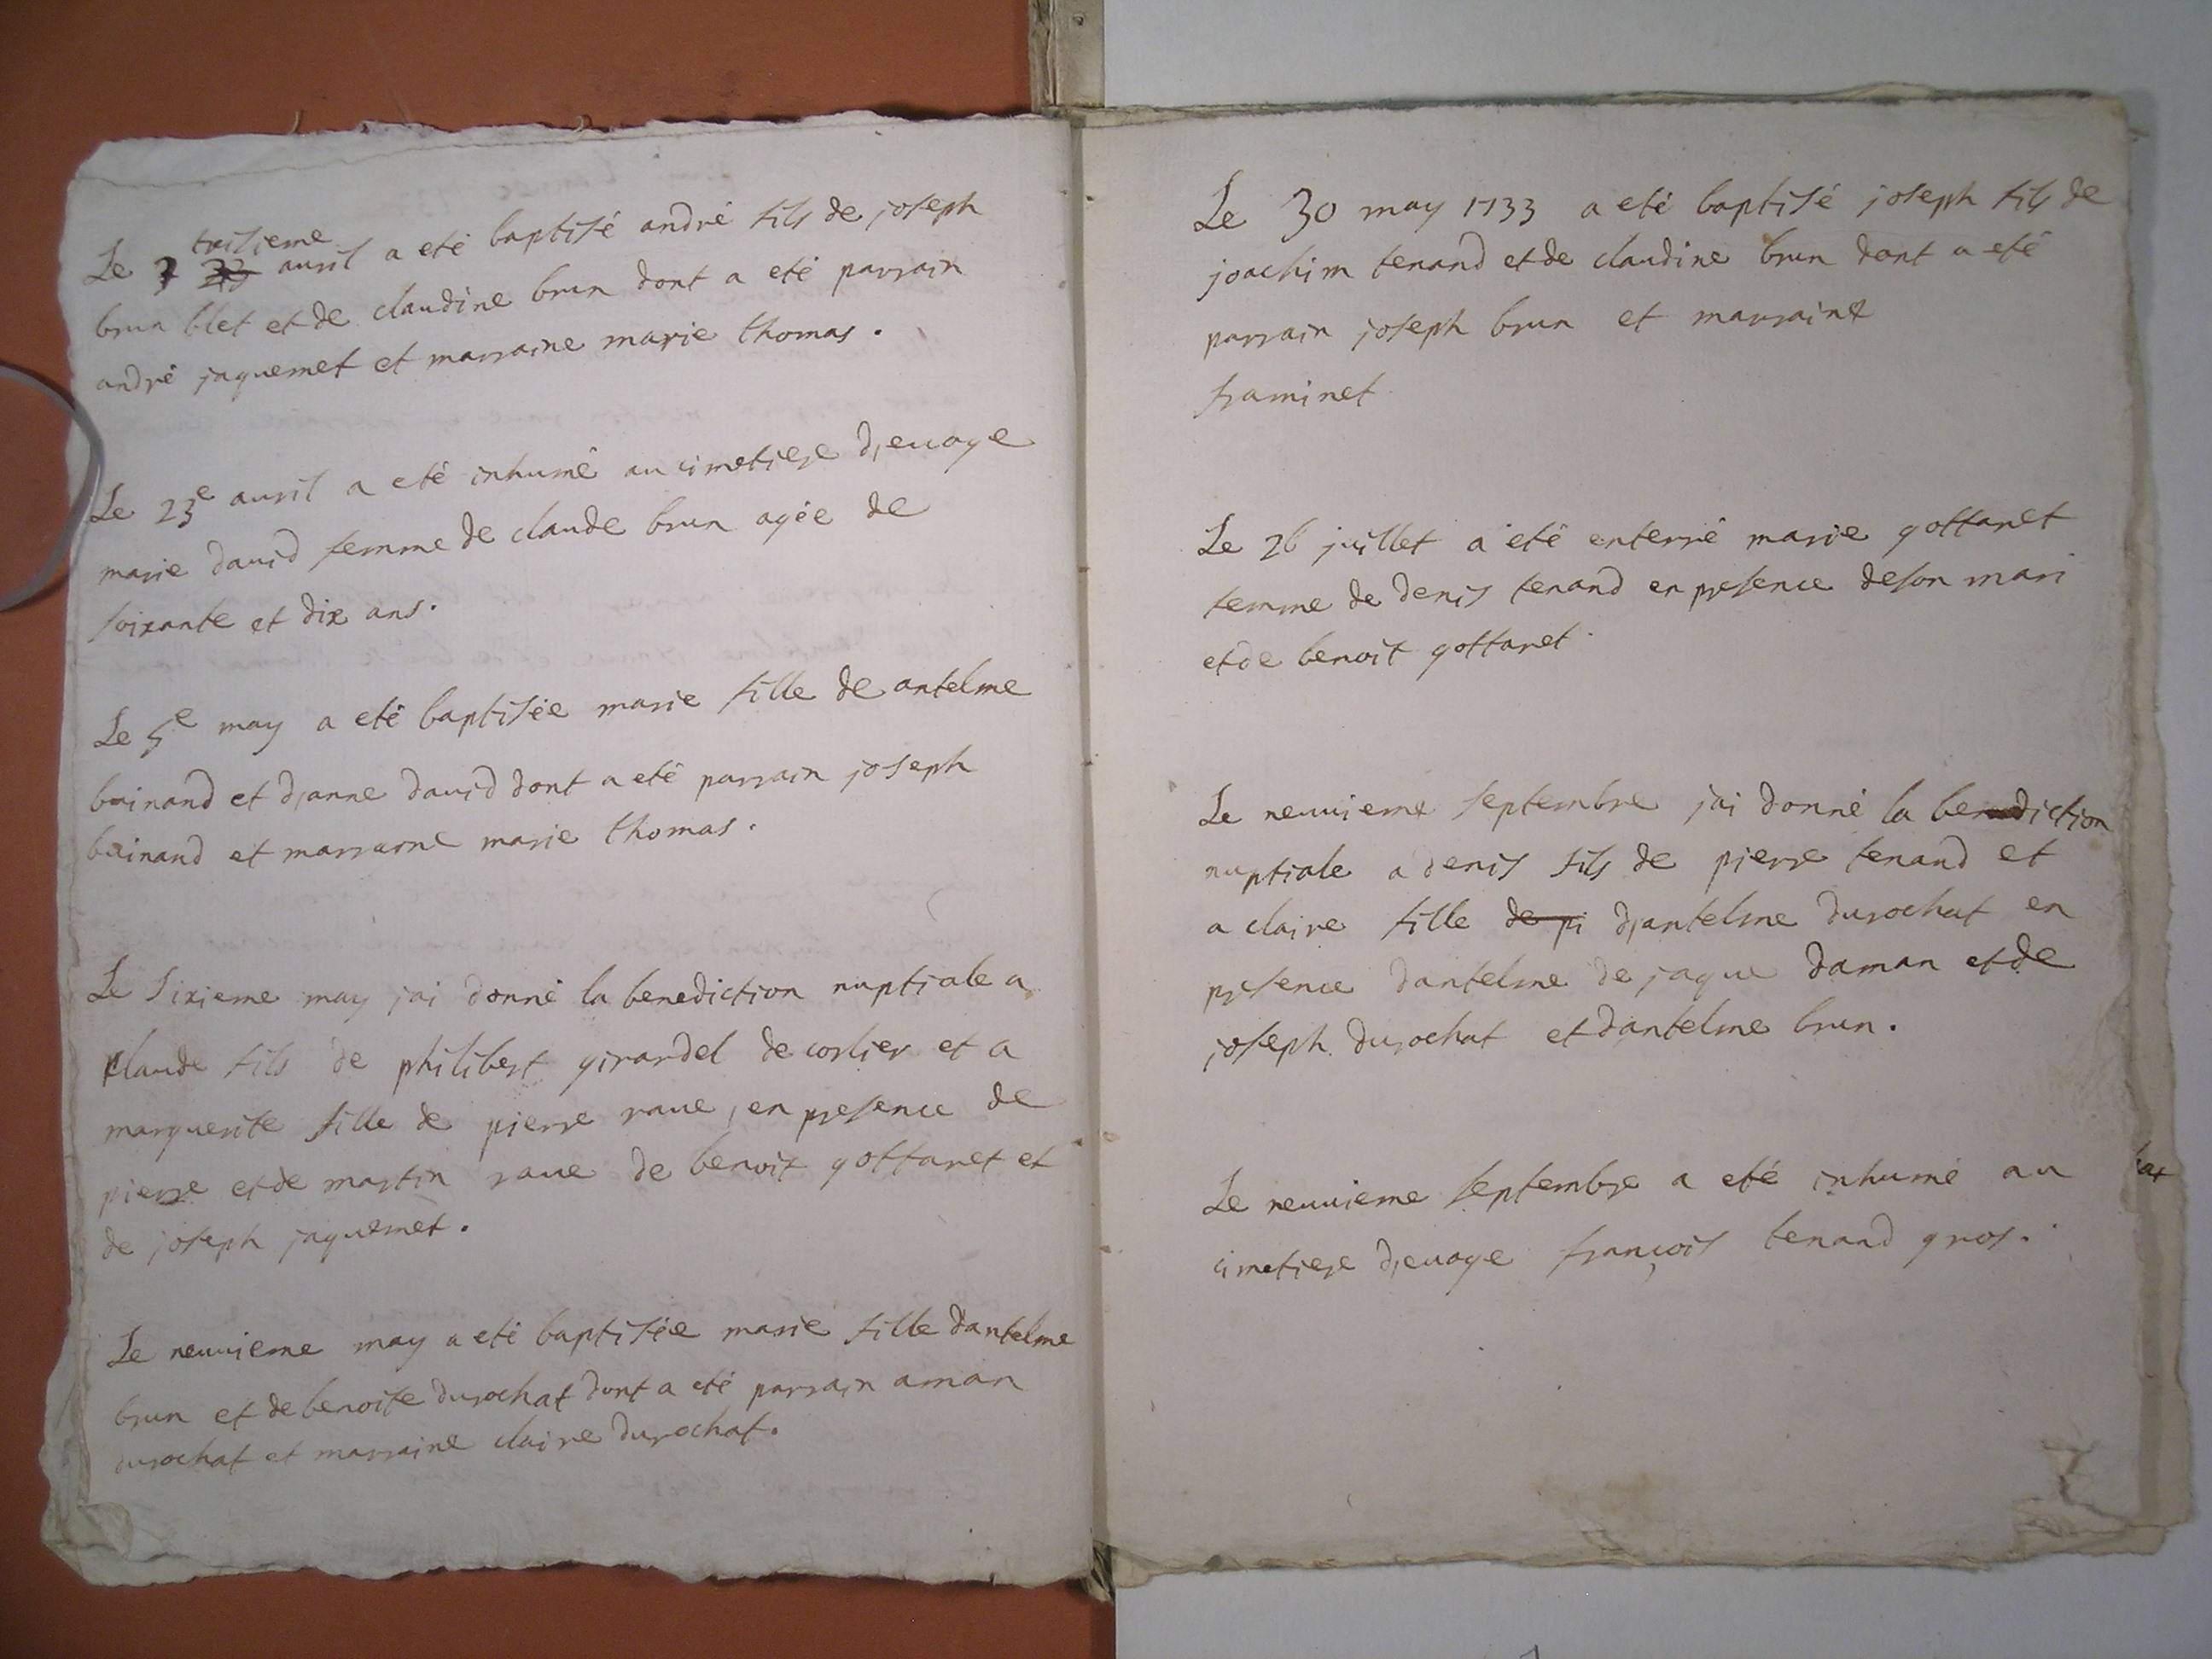 Le troisieme auril a eté baptisé andré fils de joseph
brun blet et de claudine brun dont a eté parrain
andré jaquemet et marraine marie thomas.
Le 23e auril a eté inhumé au cimetiere d'euoge
marie dauid femme de claude brun agée de
soixante et dix ans.
Le 5e may a eté baptisée marie fille de antelme
buinand et d'anne dauid dont a eté parrain joseph
buinand et marraine marie thomas.
Le sixieme may jai donné la benediction nuptiale a
claude fils de philibert girardel de corlier et a
marguerite fille de pierre raue, en presence de
pierre et de martin raue de benoit gottaret et
de joseph jaquemet.
Le neuuieme may a eté baptisée marie fille dantelme
brun et de benoite durochat dont a eté parrain aman
durochat et marraine claire durochat.
Le 30 may 1733 a eté baptisé joseph fils de
joachim tenand et de claudine brun dont a eté
parrain joseph brun et marraine
framinet
Le 26 juillet a eté enterré marie gottaret
femme de denis tenand en presence de son mari
et de benoit gottaret.
Le neuuieme septembre jai donné la benediction
nuptiale a denis fils de pierre tenand et
a claire fille de pi d'antelme durochat en
presence dantelme de jaque daman et de
joseph durochat et dantelme brun.
Le neuuieme septembre a eté inhumé au
cimetiere d'euoge françois tenand gros.